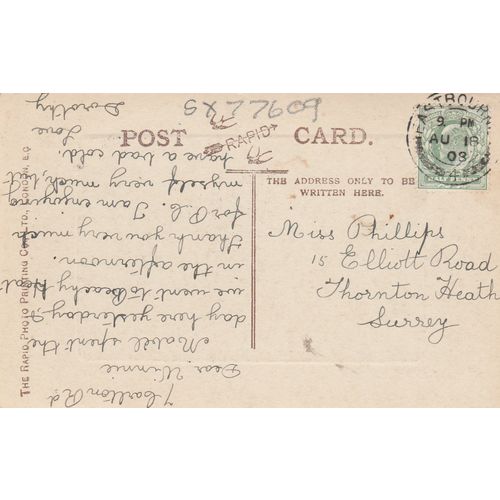 SX 77609
POST CARD.
RAPID
THE ADDRESS ONLY TO BE
WRITTEN HERE.
EASTBOURNE
9 PM
AU 18
08
Miss Phillips
15 Elliott Road
Thornton Heath
Surrey
7 Carlton Rd
Dear Winnie
Mabel spent the
day here yesterday &
we went to Beachy Hd
in the afternoon.
Thank you very much
for P.C. I am enjoying
myself very much, but
have a bad cold.
Love
Dorothy
THE RAPID PHOTO PRINTING CO., LTD., LONDON, E.C.